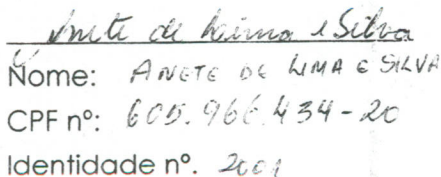 Anete de Lima e Silva
Nome: ANETE DE LIMA E SILVA
CPF nº: 605.966.434-20
Identidade nº. 2001